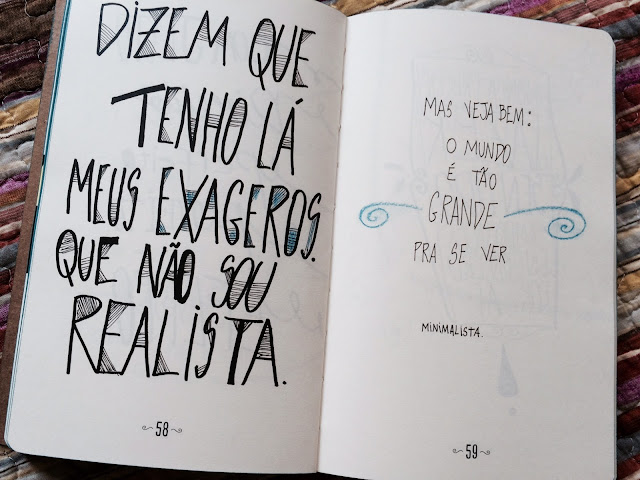 DIZEM QUE
TENHO LÁ
MEUS EXAGEROS.
QUE NÃO SOU
REALISTA.
58
MAS VEJA BEM:
O MUNDO
É TÃO
GRANDE
PRA SE VER
MINIMALISTA.
59